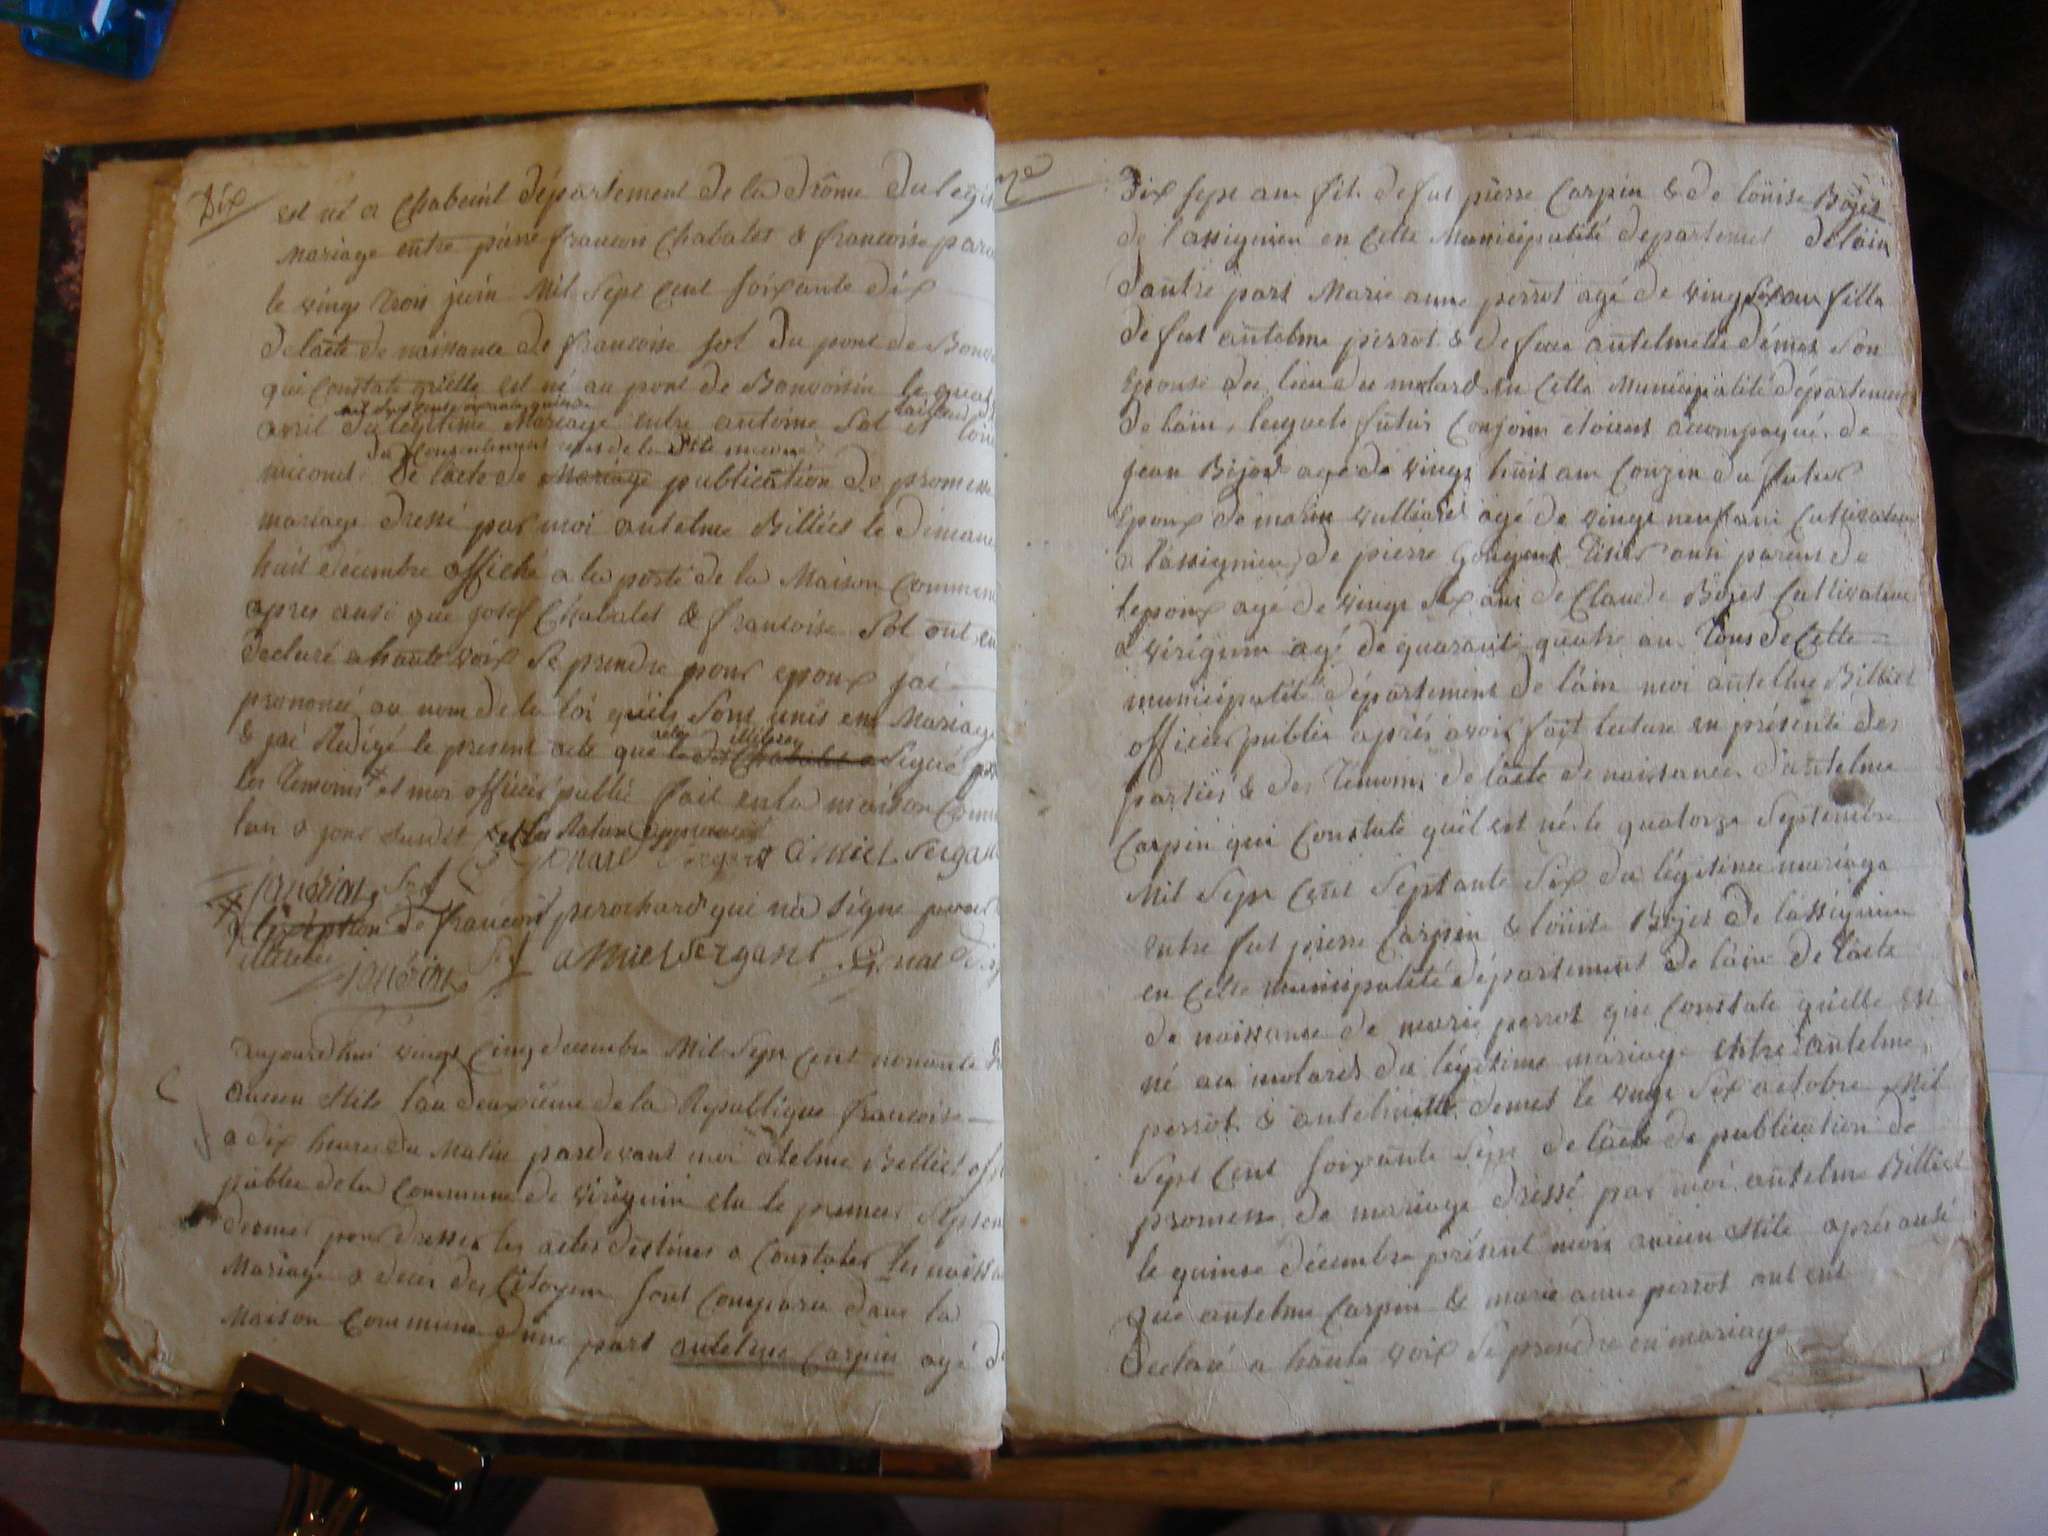 Dix
est né a Chabeuil département de la drôme du legit
Mariage entre pierre francois Chabalet & francoise
le vingt trois juin Mil Sept cent soixante dix
de lacte de naissance de francoise Sol du pont de Bonv
qui Constate quelle est né au pont de Bonvoisin le quat
avril du legitime Mariage entre antoine Sol et
du Consentement
De lacte de Mariage publication de promesse
mariage dressé par moi antelme Billiet le dimanc
huit decembre affiché a la porte de la Maison Commun
apres ausi que josef Chabalet & francoise Sol ont
declaré a haute voix se prendre pour epoux jai
prononcé au nom de la loi quils sont unis en Mariage
& jai Redigé le present acte que le dit Chabalet a Signé
les Temoins et moi officier public fait en la maison Comm
lan & jour susdit
Amiel Sergant
a lexeption de francois perochard qui na Signe pour
illiteré
Amiel Sergant
aujourdhui vingt cinq decembre Mil Sept Cent nonante
ancien stile lan deuxième de la Republique francoise
a dix heures du Matin pardevant moi atelme Billiet off
public de la Commune de virignin elu le premier Septem
dernier pour dresser les actes destinés a Constater les naissa
Mariage & deces des Citoyens sont Comparu dans la
Maison Commune dune part antelme Carpin agé d
Dix sept ans fils de fut pierre Carpin & de loüise Bojet
de lassignieu en Cette Municipalité departement de lain
dautre part Marie anne perrot agé de vingt six ans fille
de fut antelme perrot & de feue antelmette démet son
Epouse du lieu du molard en Cette Municipalité département
de lain, lesquels futurs Conjoins etoient accompagné de
jean Bijod agé de vingt huit ans Couzin du futur
Epoux de marin vulliod agé de vingt neuf ans Cultivateur
a lassignieu, de pierre Tisier ausi parent de
lepoux agé de vingt six ans de Claude Bojet Cultivateur
a virignin agé de quarante quatre ans Tous de Cette
municipalité département de lain moi antelme Billiet
officier public après avoir fait lecture en présence des
parties & des Temoins de lacte de naissance dantelme
Carpin qui Constate quil est né le quatorze Septembre
Mil Sept Cent Septante Six du légitime mariage
entre fut pierre Carpin & loüise Bojet de lassignieu
en Cette municipalité département de lain de lacte
de naissance de marie perrot qui Constate quelle est
né au molard du légitime mariage entre antelme
perrot & antelmette demet le vingt Six octobre Mil
Sept Cent Soixante Sept de lacte de publication de
promesse de mariage dressé par moi antelme Billiet
le quinze décembre présent mois ancien stile après ausi
que antelme Carpin & marie anne perrot ont
Declaré a haute voix se prendre en mariage